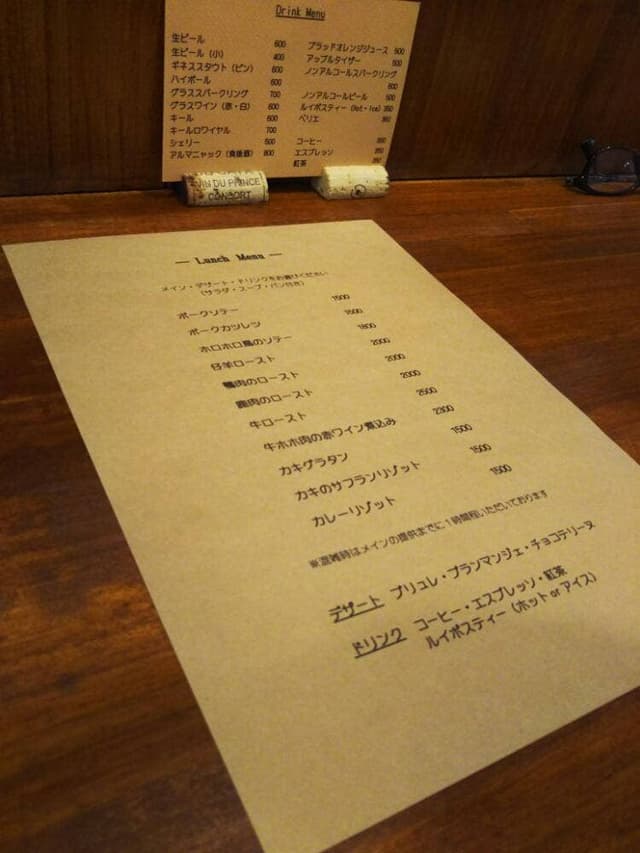 Drink Menu
生ビール 600
生ビール (小) 400
ギネススタウト (ビン) 600
ハイボール 600
グラススパークリング 700
グラスワイン (赤・白) 600
キール 600
キールロワイヤル 700
シェリー 500
アルマニャック (食後酒) 800
ブラッドオレンジジュース 500
アップルタイザー 500
ノンアルコールスパークリング
600
ノンアルコールビール 500
ルイボスティー (Hot・Ice) 350
ペリエ 350
コーヒー 350
エスプレッソ 350
紅茶 350
VIN DU PRINCE
CONSORT
— Lunch Menu —
メイン・デザート・ドリンクをお選びください
(サラダ・スープ・パン付き)
ポークソテー 1500
ポークカツレツ 1500
ホロホロ鳥のソテー 1800
仔羊ロースト 2000
鴨肉のロースト 2000
鹿肉のロースト 2000
牛ロースト 2500
牛ホホ肉の赤ワイン煮込み 2300
カキグラタン 1500
カキのサフランリゾット 1500
カレーリゾット 1500
※混雑時はメインの提供までに1時間程いただいております
デザート ブリュレ・ブランマンジェ・チョコテリーヌ
ドリンク コーヒー・エスプレッソ・紅茶
ルイボスティー (ホット or アイス)